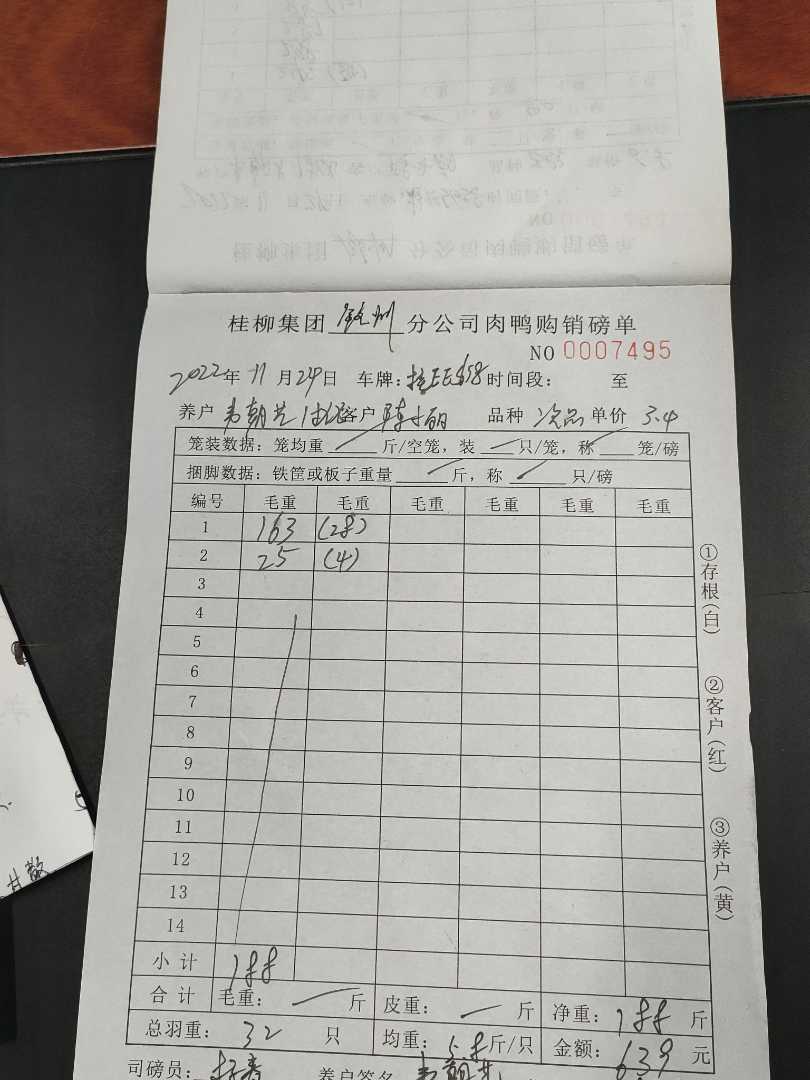 桂柳集团 钦州 分公司肉鸭购销磅单
NO 0007495
2022年 11月24日 车牌: 时间段: 至
养户 客户 陈小丽 品种 次品 单价 3.4
笼装数据:笼均重 斤/空笼,装 只/笼,称 笼/磅
捆脚数据:铁筐或板子重量 斤,称 只/磅
编号 毛重 毛重 毛重 毛重 毛重 毛重
1 163 (28)
2 25 (4)
3
4
5
6
7
8
9
10
11
12
13
14
小计 188
合计 毛重: 斤 皮重: 斤 净重: 188 斤
总羽重: 32 只 均重: 5.8 斤/只 金额: 639 元
司磅员: 养户签名
①存根(白)
②客户(红)
③养户(黄)